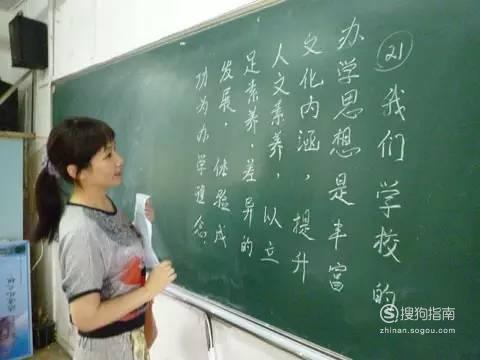 ㉑我们学校的
办学思想是丰富
文化内涵，提升
人文素养，以立
足素养，差异的
发展，体验成
功为办学理念。
搜狗指南
zhinan.sogou.com